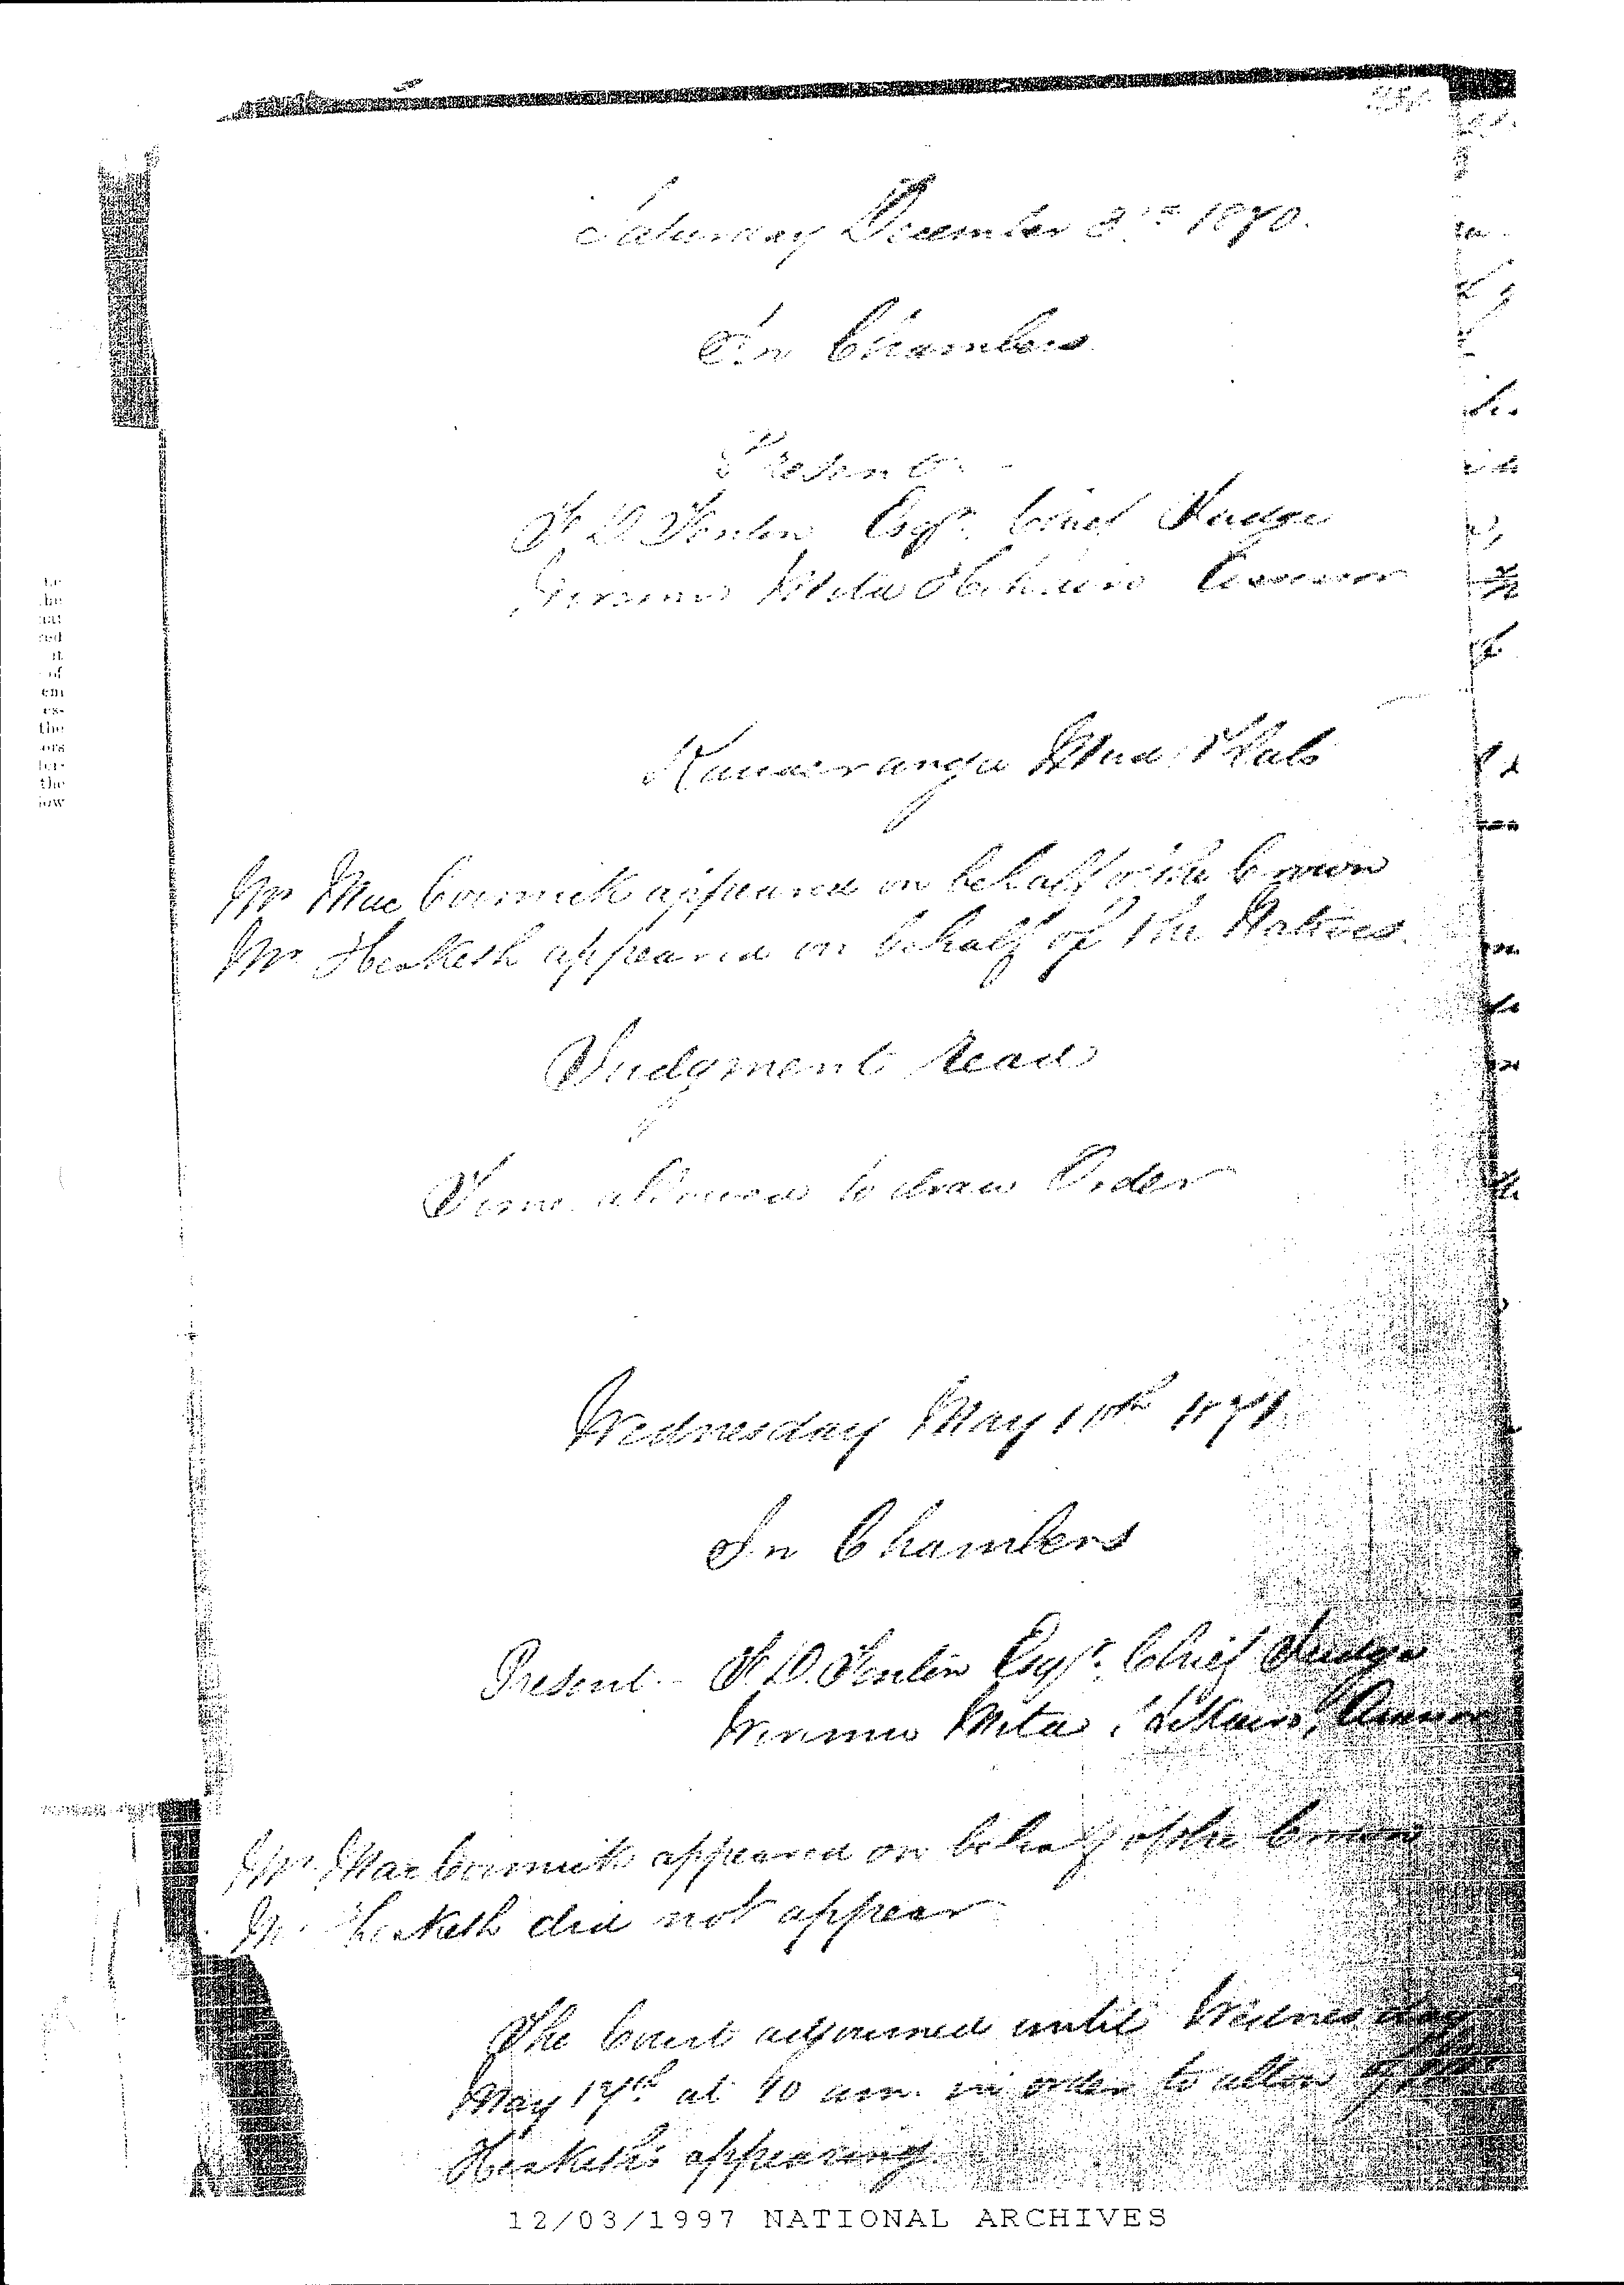 Saturday December 3rd 1870.
In Chambers
Present
F. D. Fenton Esqr. Chief Judge
Wiremu Mita Hikairo Assessor
Kauaeranga Mud Flats
Mr MacCormick appeared on behalf of the Crown
Mr. Hesketh appeared on behalf of the Natives.
Judgment read
Time allowed to draw Order
Wednesday May 10th 1871.
In Chambers
Present. F. D. Fenton Esqr. Chief Judge
Wiremu Mita Hikairo, Assessor
Mr. MacCormick appeared on behalf of the Crown
Mr. Hesketh did not appear
The Court adjourned until Wednesday
May 17th at 10 am. in order to allow of Mr
Hesketh's appearing.
12/03/1997 NATIONAL ARCHIVES